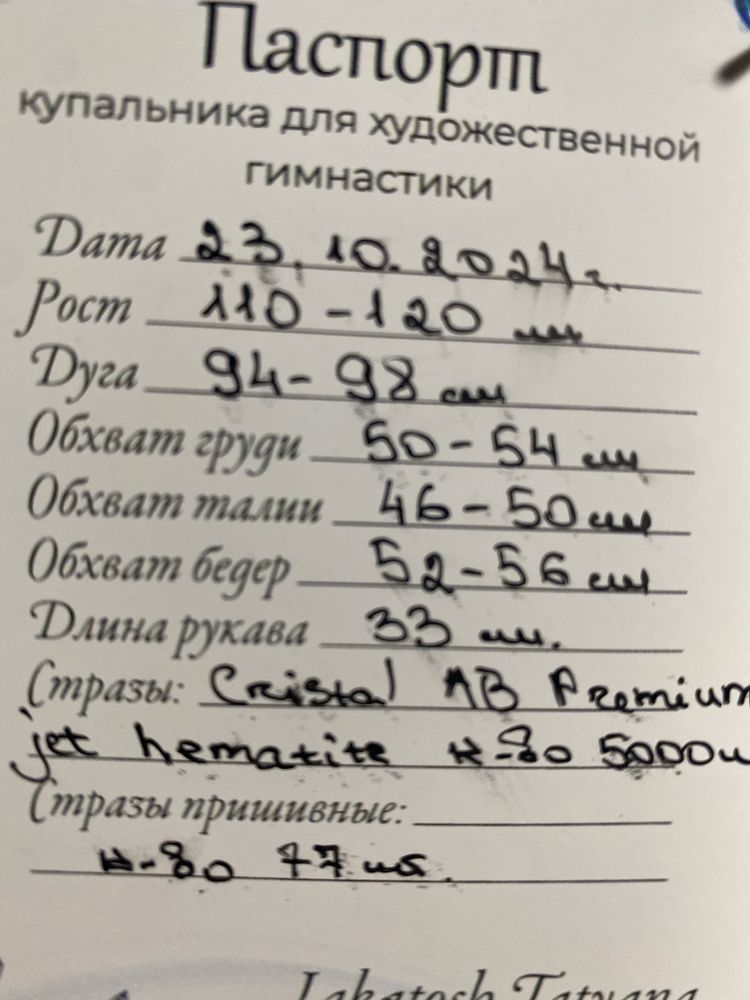 Паспорт
купальника для художественной
гимнастики
Дата 23.10.2024г.
Рост 110-120 см
Дуга 94-98 см
Обхват груди 50-54 см
Обхват талии 46-50 см
Обхват бедер 52-56 см
Длина рукава 33 см.
Стразы: Cristal AB Premium
jet hematite к-во 5000ш
Стразы пришивные:
к-во 77 шт.
Lakatosh Tatyana